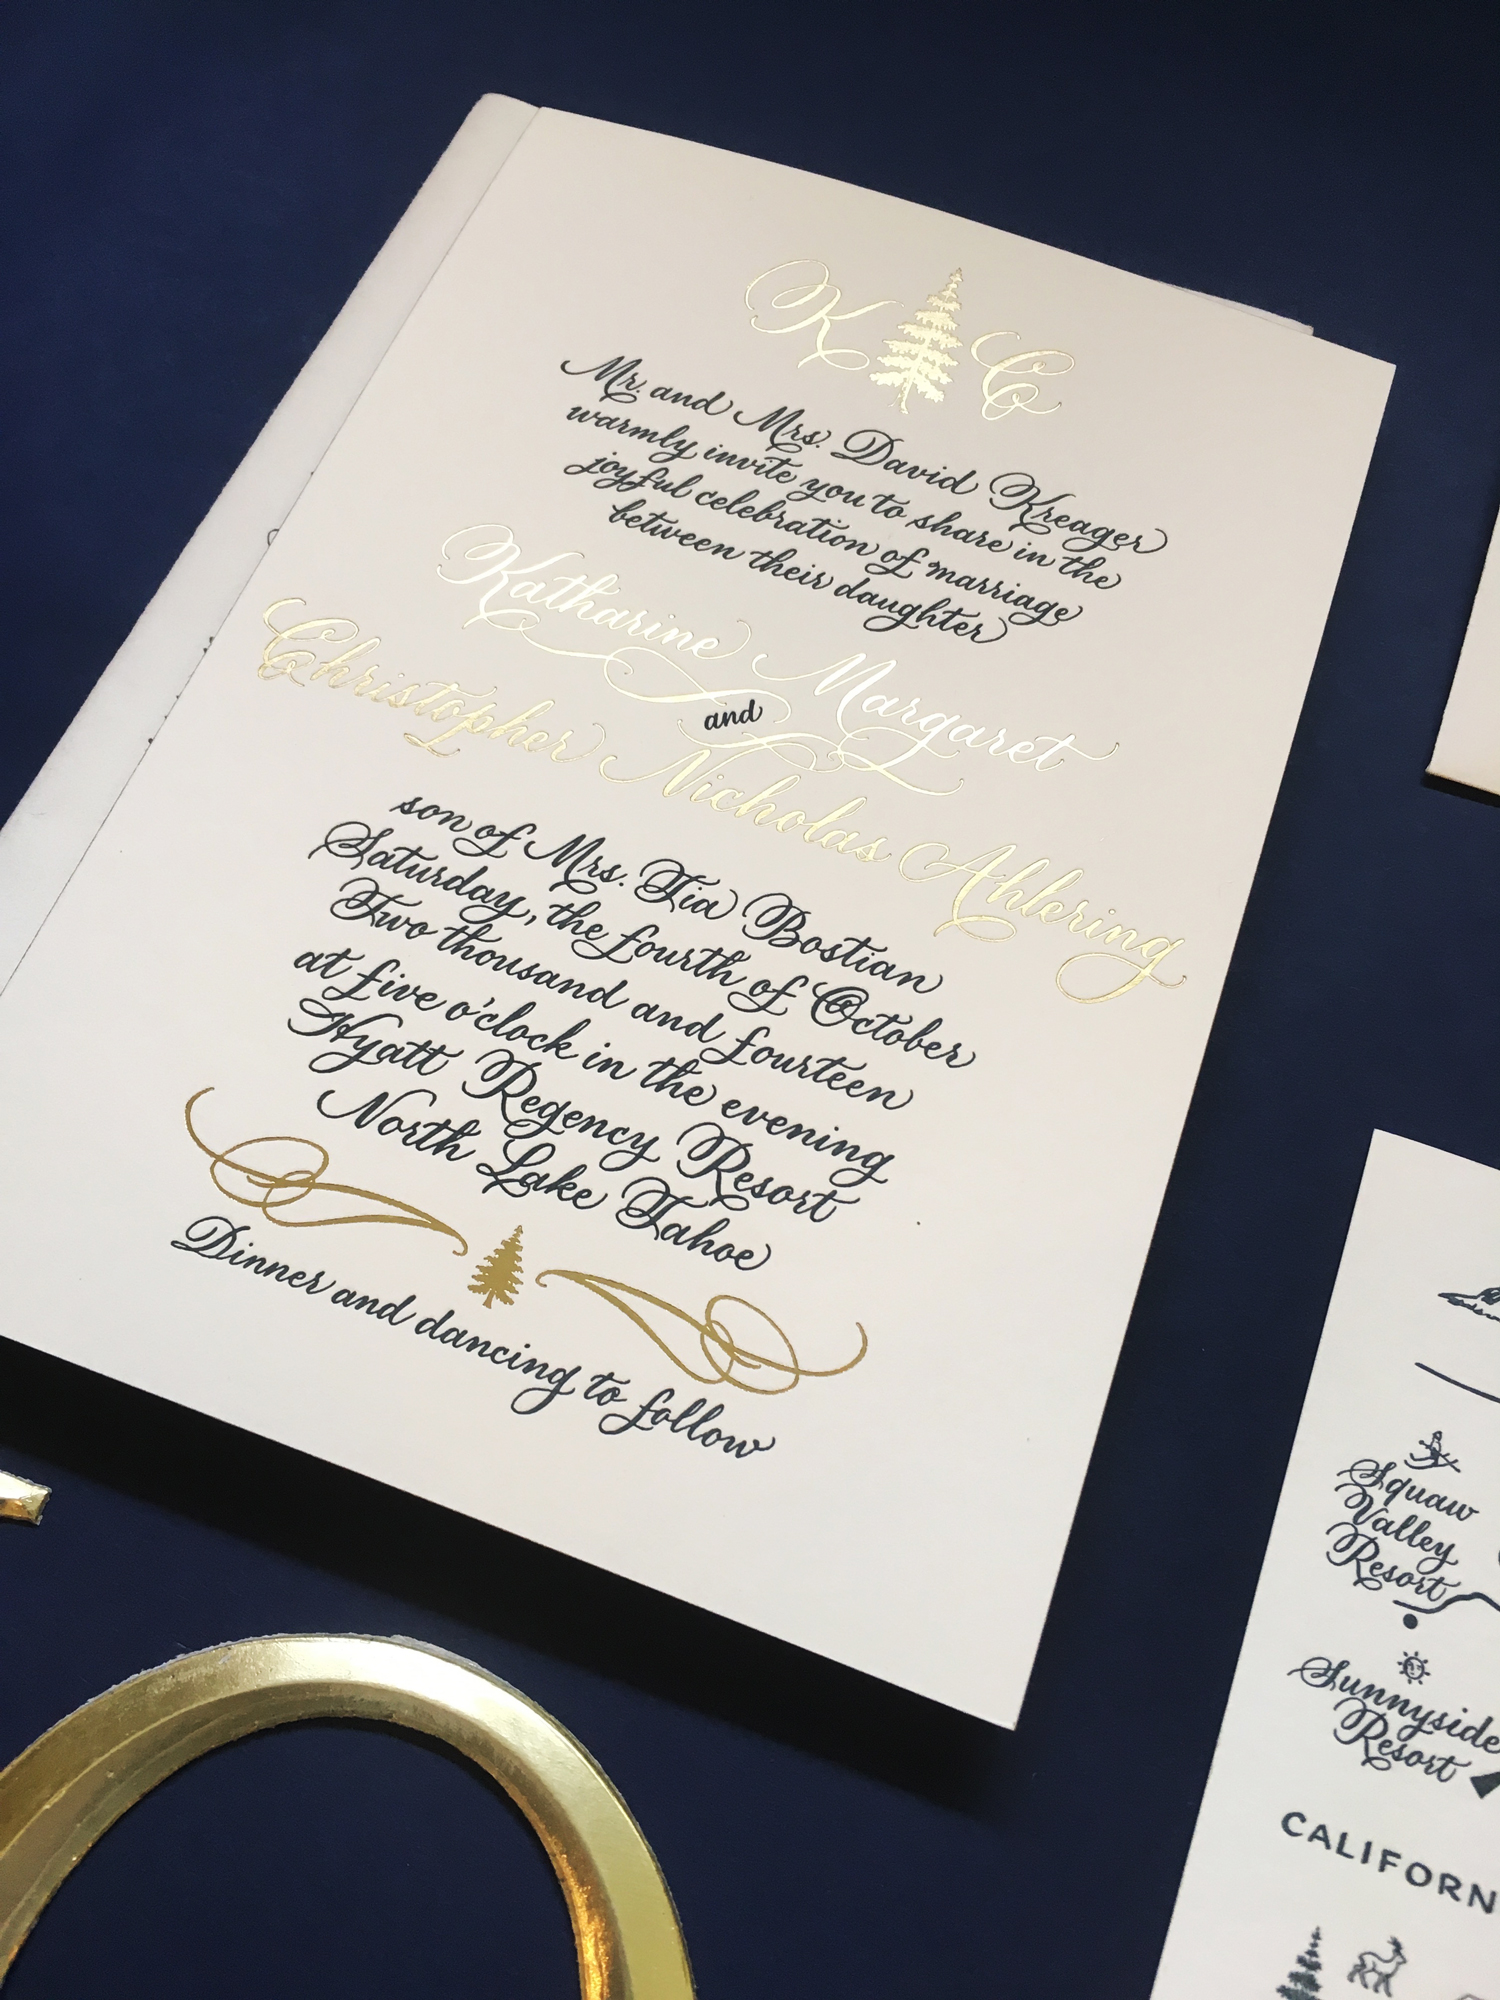 K C
Mr. and Mrs. David Kreager
warmly invite you to share in the
joyful celebration of marriage
between their daughter
Katharine Margaret
and
Christopher Nicholas Ahlering
son of Mrs. Tia Bostian
Saturday, the fourth of October
Two thousand and fourteen
at five o'clock in the evening
Hyatt Regency Resort
North Lake Tahoe
Dinner and dancing to follow
Squaw
Valley
Resort
Sunnyside
Resort
CALIFORN